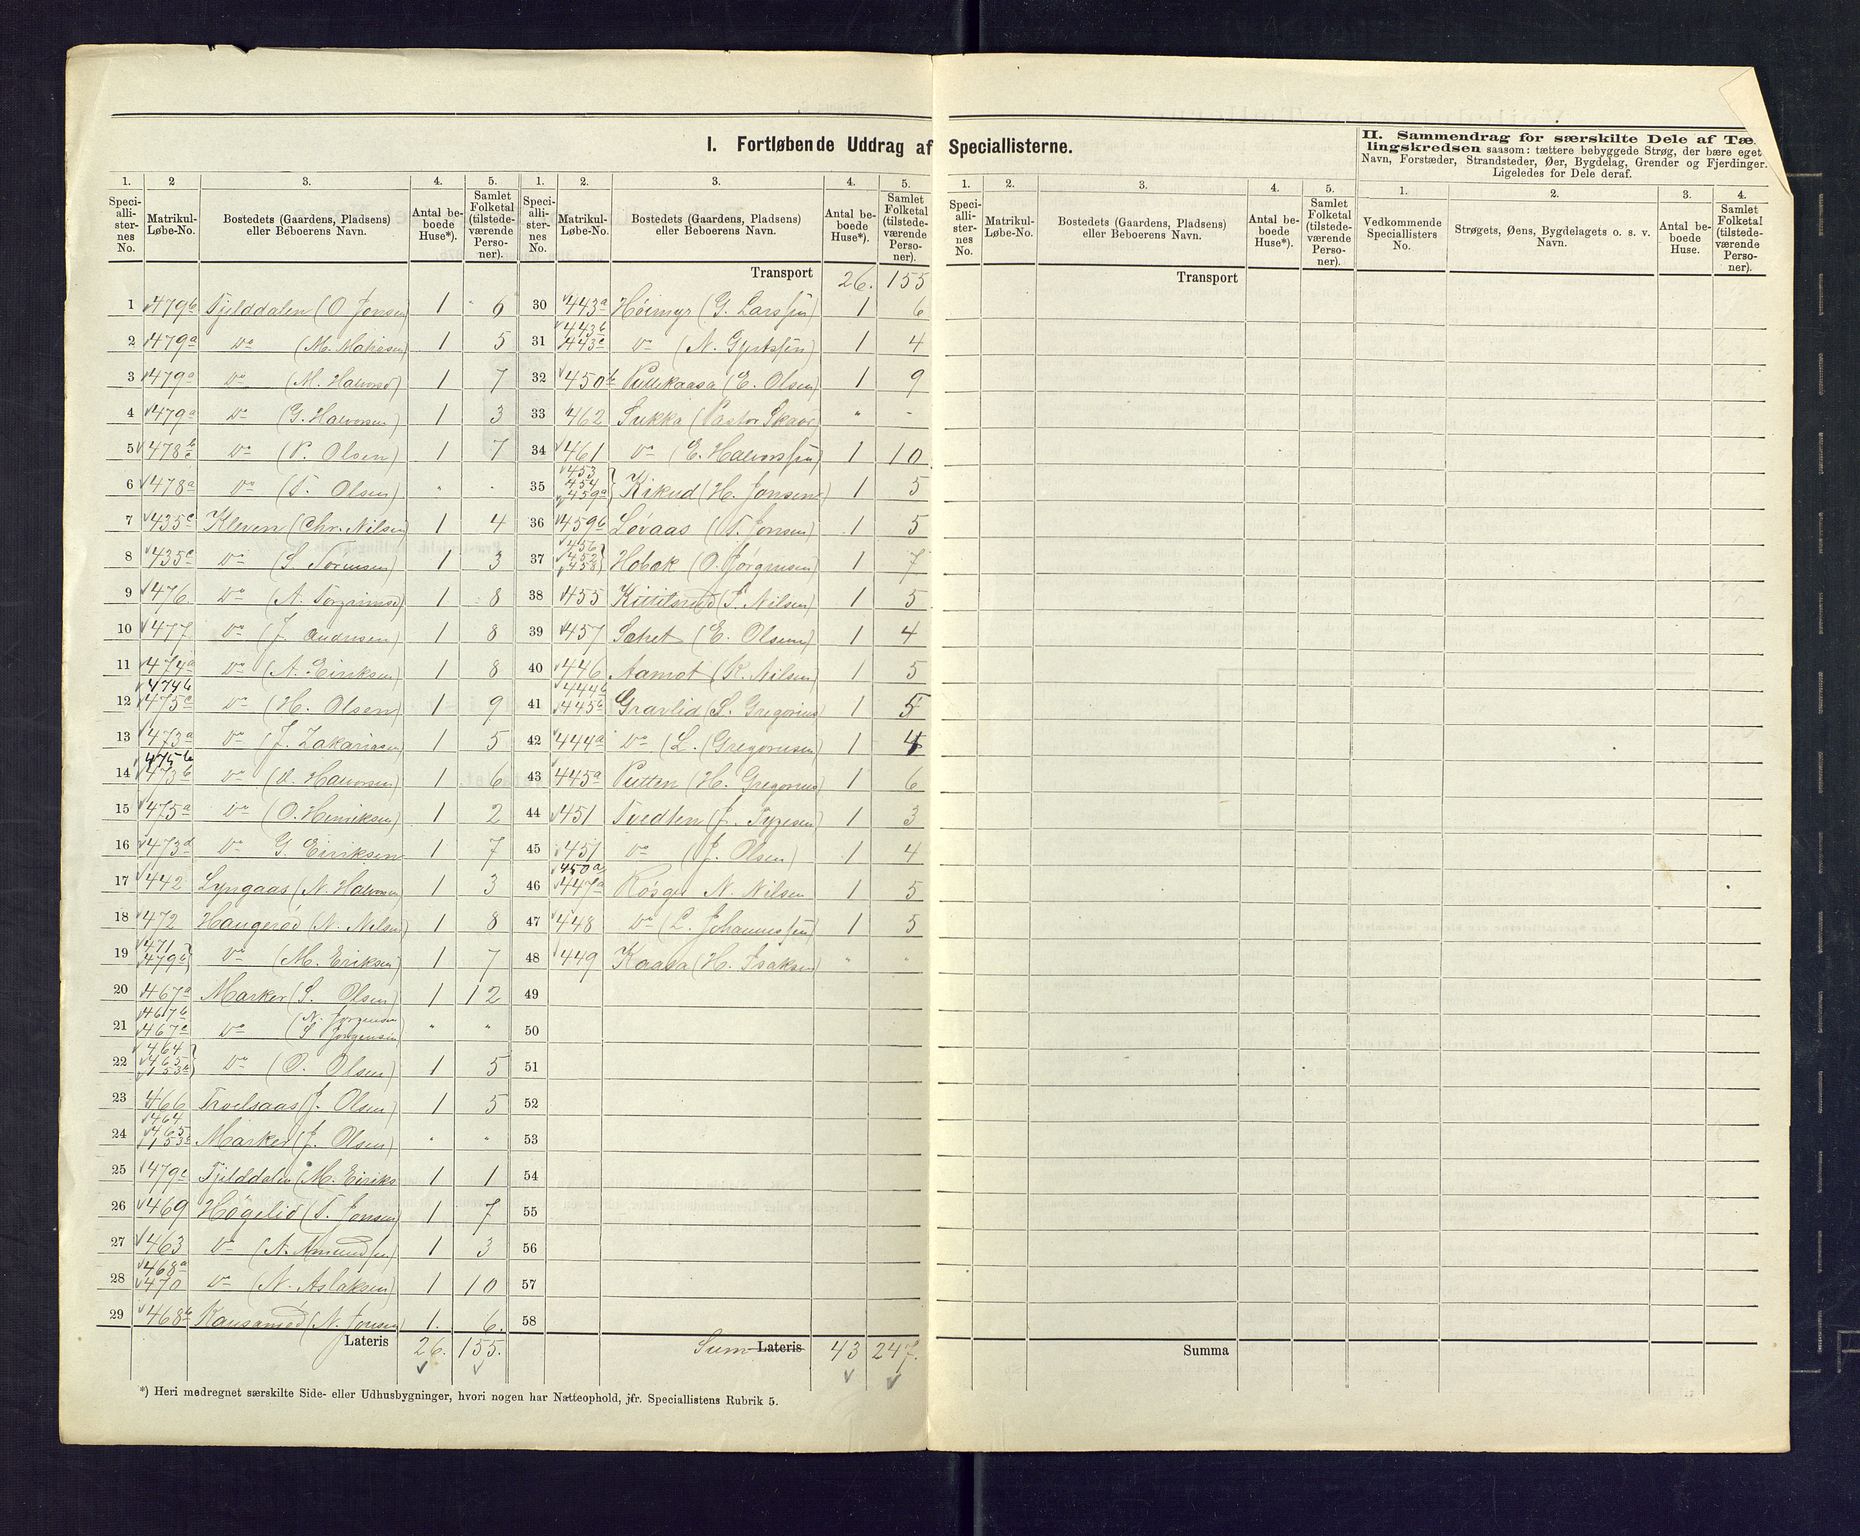 I. Fortløbende Uddrag af Speciallisterne.
II. Sammendrag for særskilte Dele af Tællingskredsen saasom: tættere bebyggede Strøg, der bære eget
Navn, Forstæder, Strandsteder, Øer, Bygdelag, Grender og Fjerdinger.
Ligeledes for Dele deraf.
1. 2 3. 4. 5.
Speciallisternes No. Matrikul-Løbe-No. Bostedets (Gaardens, Pladsens) eller Beboerens Navn. Antal beboede Huse*). Samlet Folketal (tilstedeværende Personer).
1 479b Tjelddalen (O. Jonsen) 1 6
2 479a Do (M. Mathisen) 1 5
3 479a Do (M. Halvorsd) 1 7
4 479a Do (G. Halvorsen) 1 3
5 478b c Do (P. Olsen) 1 7
6 478a Do (T. Olsen) " "
7 435c Kleven (Chr. Nilsen) 1 4
8 435c Do (S. Torersen) 1 3
9 476 Do (A. Torgrimsd) 1 8
10 477 Do (J. Andersen) 1 8
11 474a Do (A. Eiriksen) 1 8
12 474b 475c Do (H. Olsen) 1 9
13 473a Do (J. Zakariasen) 1 5
14 475b 473b Do (O. Halvorsen) 1 6
15 475a Do (O. Henriksen) 1 2
16 473d Do G. Eiriksen 1 7
17 442 Lyngaas (N. Halvorsen) 1 3
18 472 Haugerød (N. Nilsen) 1 8
19 471 479b Do (M. Eriksen) 1 7
20 467a Marker (S. Olsen) 1 12
21 467b 467c Do (N. Jørgensen S. Jørgensen) " "
22 464 465 153b Do (O. Olsen) 1 5
23 466 Troelsaas (J. Olsen) 1 5
24 464 465 153b Marker (J. Olsen) " "
25 479c Tjelddalen (M. Eiriks 1 1
26 469 Høgelid (T. Jonsen) 1 7
27 463 Do (A. Amundsen) 1 3
28 468a 470 Do (N. Aslaksen) 1 10
29 468b Kausarød (N. Jonsen) 1. 6.
Lateris 26. 155.
1. 2. 3. 4. 5.
Speciallisternes No. Matrikul-Løbe-No. Bostedets (Gaardens, Pladsens) eller Beboerens Navn. Antal beboede Huse*). Samlet Folketal (tilstedeværende Personer).
Transport 26. 155
30 443a Høimyr (G. Larssen) 1 6
31 443b 443c Do (N. Gjertsen) 1 4
32 450b Puttekaasa (E. Olsen) 1 9
33 462 Sukka (Pastor Skaar " -
34 461 Do (E. Halvorssen) 1 10
35 453 454 459a Kikud (H. Jonsen) 1 5
36 459b Løvaas (T. Jonsen) 1 5
37 456 452 458 Hobæk (O. Jørgensen) 1 7
38 455 Kittilsrud (P. Nilsen) 1 5
39 457 Sætret (E. Olsen) 1 4
40 446 Aamot (K. Nilsen) 1 5
41 444b 445b Gravlid (S. Gregorius) 1 5
42 444a Do (L. Gregoriusen) 1 4
43 445a Putten (H. Gregorius) 1 6
44 451 Tvedten (J. 1 3
45 451 Do (J. Olsen) 1 4
46 450a 447a N. Nilsen 1 5
47 448 Do (L. Johannessen) 1 5
48 449 Kaasa (H. Isaksen) " "
49
50
51
52
53
54
55
56
57
58
Sum Lateris 43 247.
*) Heri medregnet særskilte Side- eller Udhusbygninger, hvori nogen har Natteophold, jfr. Speciallistens Rubrik 5.
1. 2. 3. 4. 5.
Speciallisternes No. Matrikul-Løbe-No. Bostedets (Gaardens, Pladsens) eller Beboerens Navn. Antal beboede Huse*). Samlet Folketal (tilstedeværende Personer).
Transport
Summa
1. 2. 3. 4.
Vedkommende Speciallisters No. Strøgets, Øens, Bygdelagets o. s. v. Navn. Antal beboede Huse. Samlet Folketal (tilstedeværende Personer).